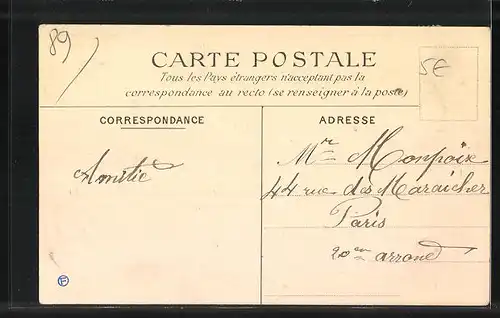 89
CARTE POSTALE
5E
Tous les Pays étrangers n'acceptant pas la
correspondance au recto (se renseigner à la poste)
CORRESPONDANCE
Amitié
ADRESSE
Mr Monpoix
44 rue des Maraicher
Paris
20em arrond
F